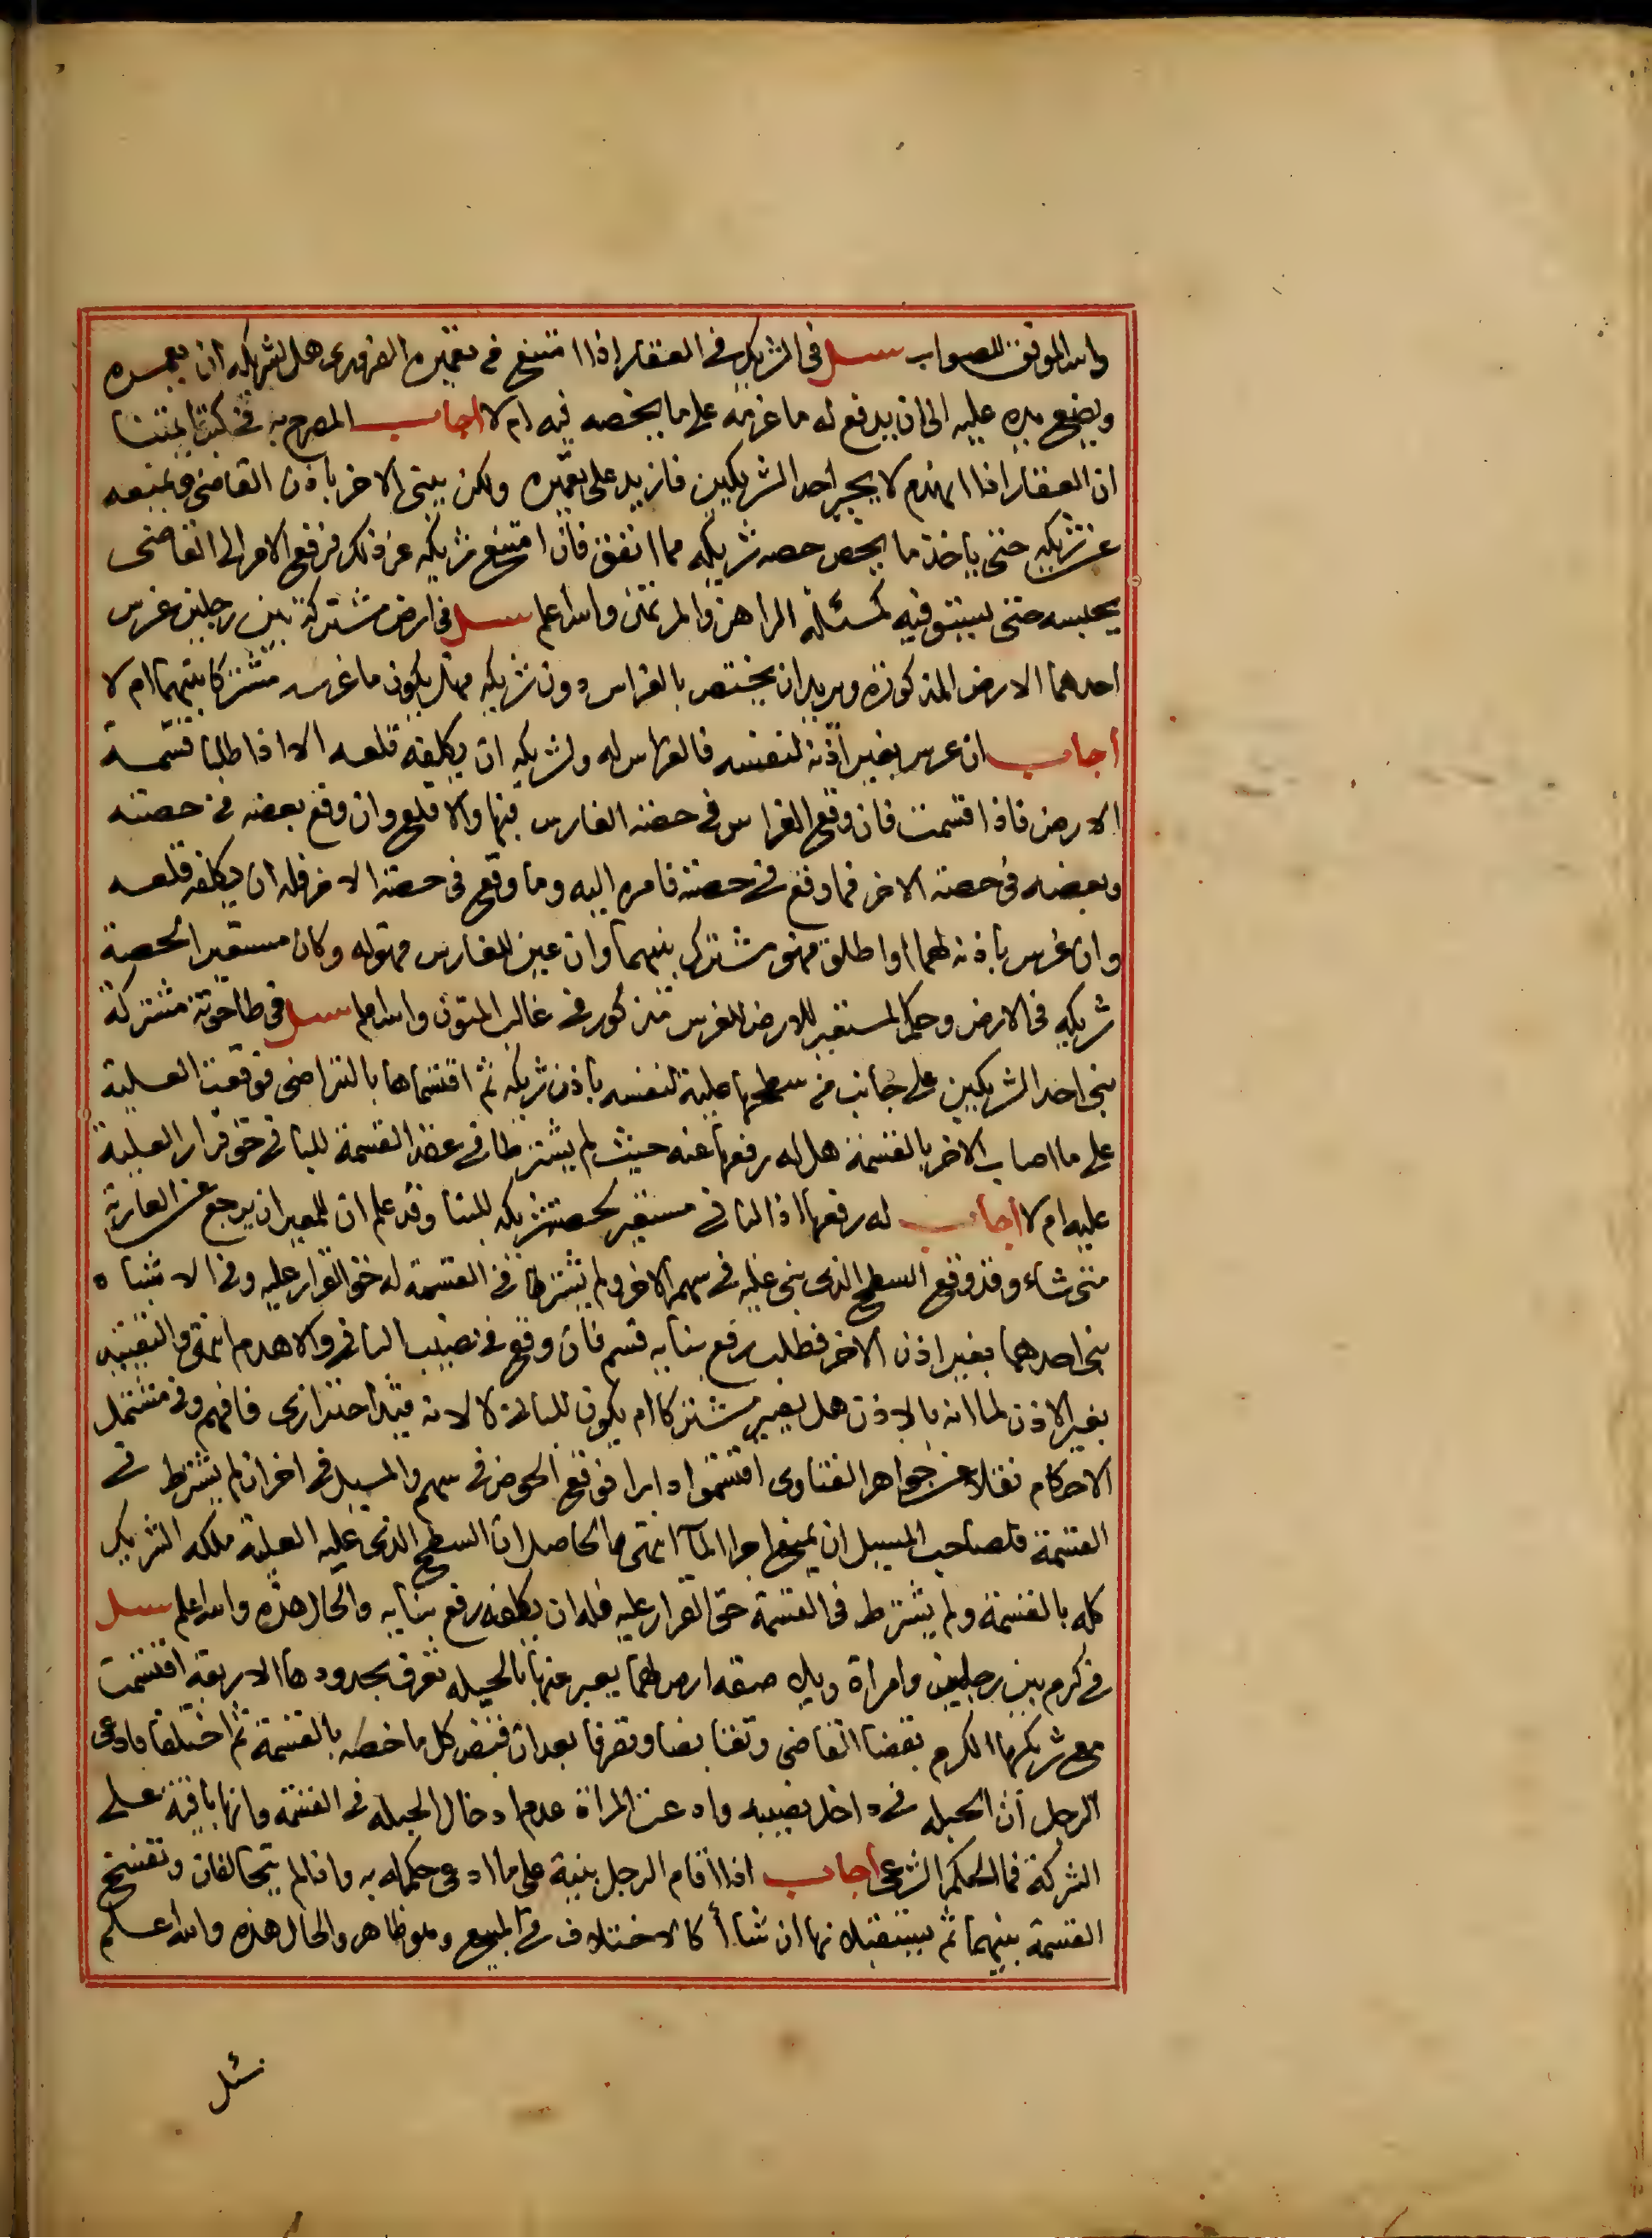 والله الموفق للصواب سئل في الشريك في العقار اذا امتنع في تعميره الضروري هل لشريكه ان يعمره
ويضع يده عليه الى ان يدفع له ما غرمه على ما يخصه فيه ام لا اجاب المصرح به في كتب ائمتنا
ان العقار اذا انهدم لا يجبر احد الشريكين فازيد على تعميره ولكن يبنى الاخر باذن القاضي ويمنعه
عن شريكه حتى ياخذ ما يخص حصه شريكه مما انفق فان امتنع شريكه عن ذلك فرفع الامر الى القاضى
يحبسه حتى يستوفيه كمسئلة الراهن والمرتهن والله اعلم سئل في ارض مشتركة بين رجلين غرس
احدهما الارض المذكورة ويريد ان يختص بالغراس دون شريكه فهل يكون ما غرسه مشتركا بينهما ام لا
أجاب ان غرس بغير اذنه لنفسه فالغراس له ولشريكه ان يكلفه قلعه الا اذا طلبا قسمة
الارض فاذا اقتسمت فان وقع الغراس في حصة الغارس فبها والا قلع وان وقع بعضه في حصته
وبعضه في حصة الاخر فما وقع في حصته فامره اليه وما وقع في حصة الاخر فله ان يكلفه قلعه
وان غرس باذنه لهما او اطلق فهو مشترك بينهما وان عين للغارس فهو له وكان مستعيرا لحصة
شريكه في الارض وحكم المستعير للارض للغرس مذكور في غالب المتون والله اعلم سئل في طاحونة مشتركة
بنى احد الشريكين على جانب من سطحها علية لنفسه باذن شريكه ثم اقتسماها بالتراضى فوقعت العلية
على ما اصاب الاخر بالقسمة هل له رفعها عنه حيث لم يشترطا في عقد القسمة للبانى حق قرار العلية
عليه ام لا أجاب له رفعها اذ البانى مستعير لحصة شريكه للبنا وقد علم ان للمعير ان يرجع عن العارية
متى شاء وقد وقع السطح الذى بنى عليه في سهم الاخر ولم يشترط في القسمة له حق القرار عليه وفي الاشباه
بنى احدهما بغير اذن الاخر فطلب رفع بنايه قسم فان وقع في نصيب البانى والا هدم انتهى والتقييد
بغير الاذن لما انه بالاذن هل يصير مشتركا ام يكون للبانى لا لانه قيد احترازي فافهم وفي مشتمل
الاحكام نقلا عن جواهر الفتاوى اقتسموا دارا فوقع الحوض في سهم والمسيل في اخر ان لم يشترط في
القسمة فلصاحب المسيل ان يمنع اجرا الماء انتهى فالحاصل ان السطح الذى عليه العلية ملكه الشريك
كله بالقسمة ولم يشترط في القسمة حق القرار عليه فله ان يكلفه رفع بنايه والحال هذه والله اعلم سئل
في كرم بين رجلين وامراة ويلي صقه ارض لهما يعبر عنها بالحبله تعرف بحدودها الاربعة اقتسمت
مع شريكها الكرم بقضا القاضى وتقابضا وتفرقا بعد ان قبض كل ما خصه بالقسمة ثم اختلفا فادعى
الرجل أن الحبله في داخل نصيبه وادعت المراة عدم ادخال الحبله في القسمة وانها باقية على
الشركة فما الحكم الشرعى أجاب اذا اقام الرجل بينة على ما ادعى حكم له به واذا لم يتحالفان وتفسخ
القسمة بينهما ثم يستقبلانها ان شاأ كالاختلاف في المبيع وهو ظاهر والحال هذه والله اعلم
سئل